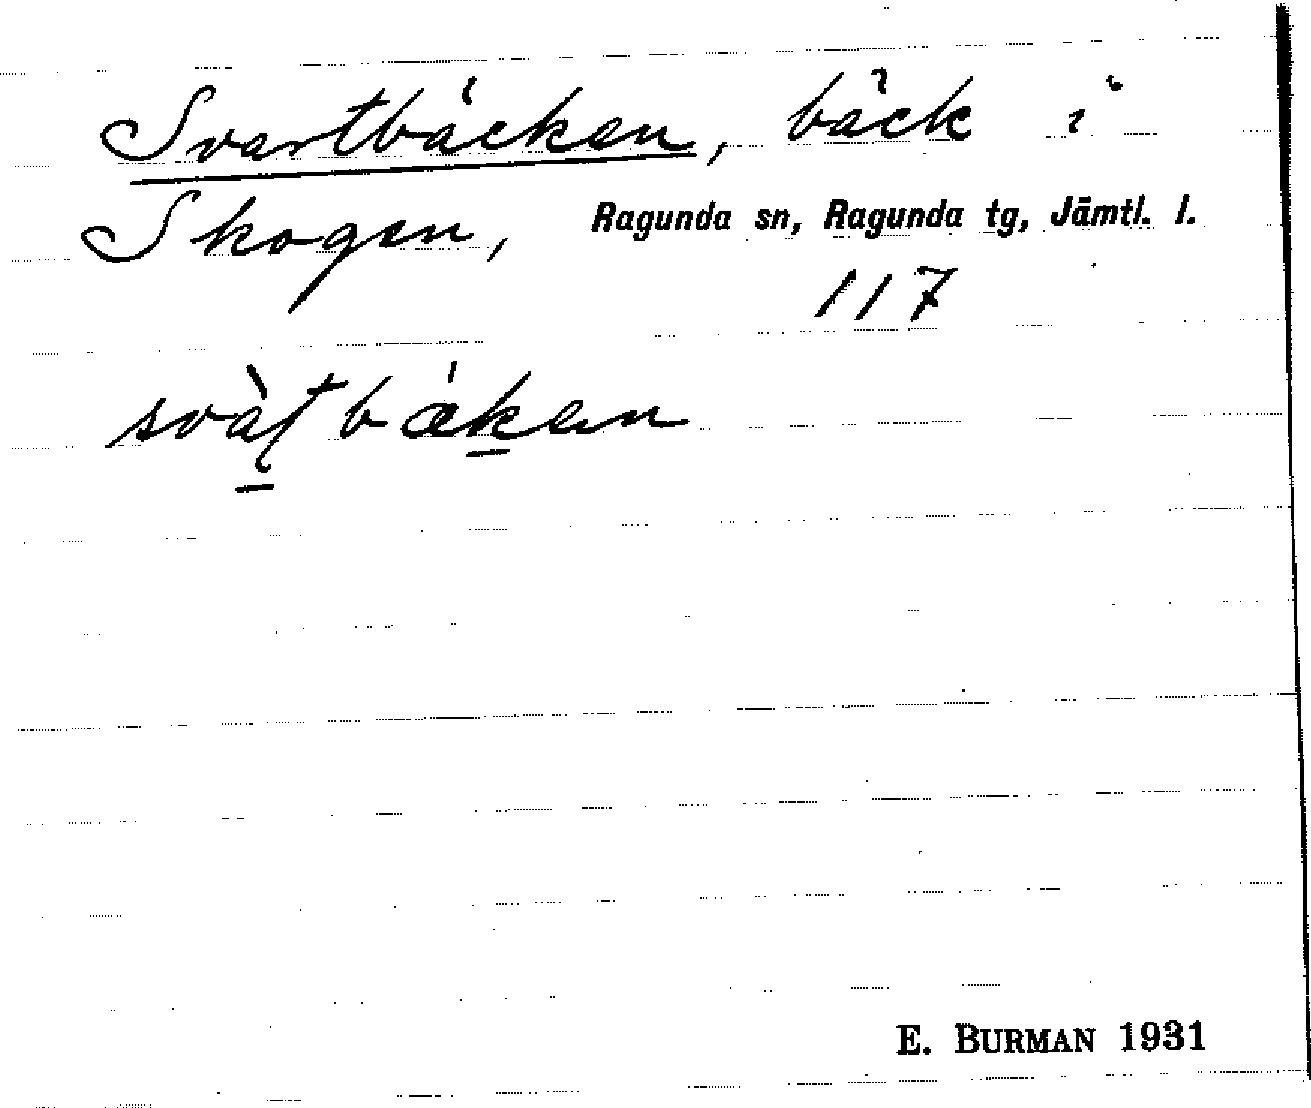 Svartbäcken, bäck i
Skogen, Ragunda sn, Ragunda tg, Jämtl. l.
117
svàt bǽken
E. BURMAN 1931